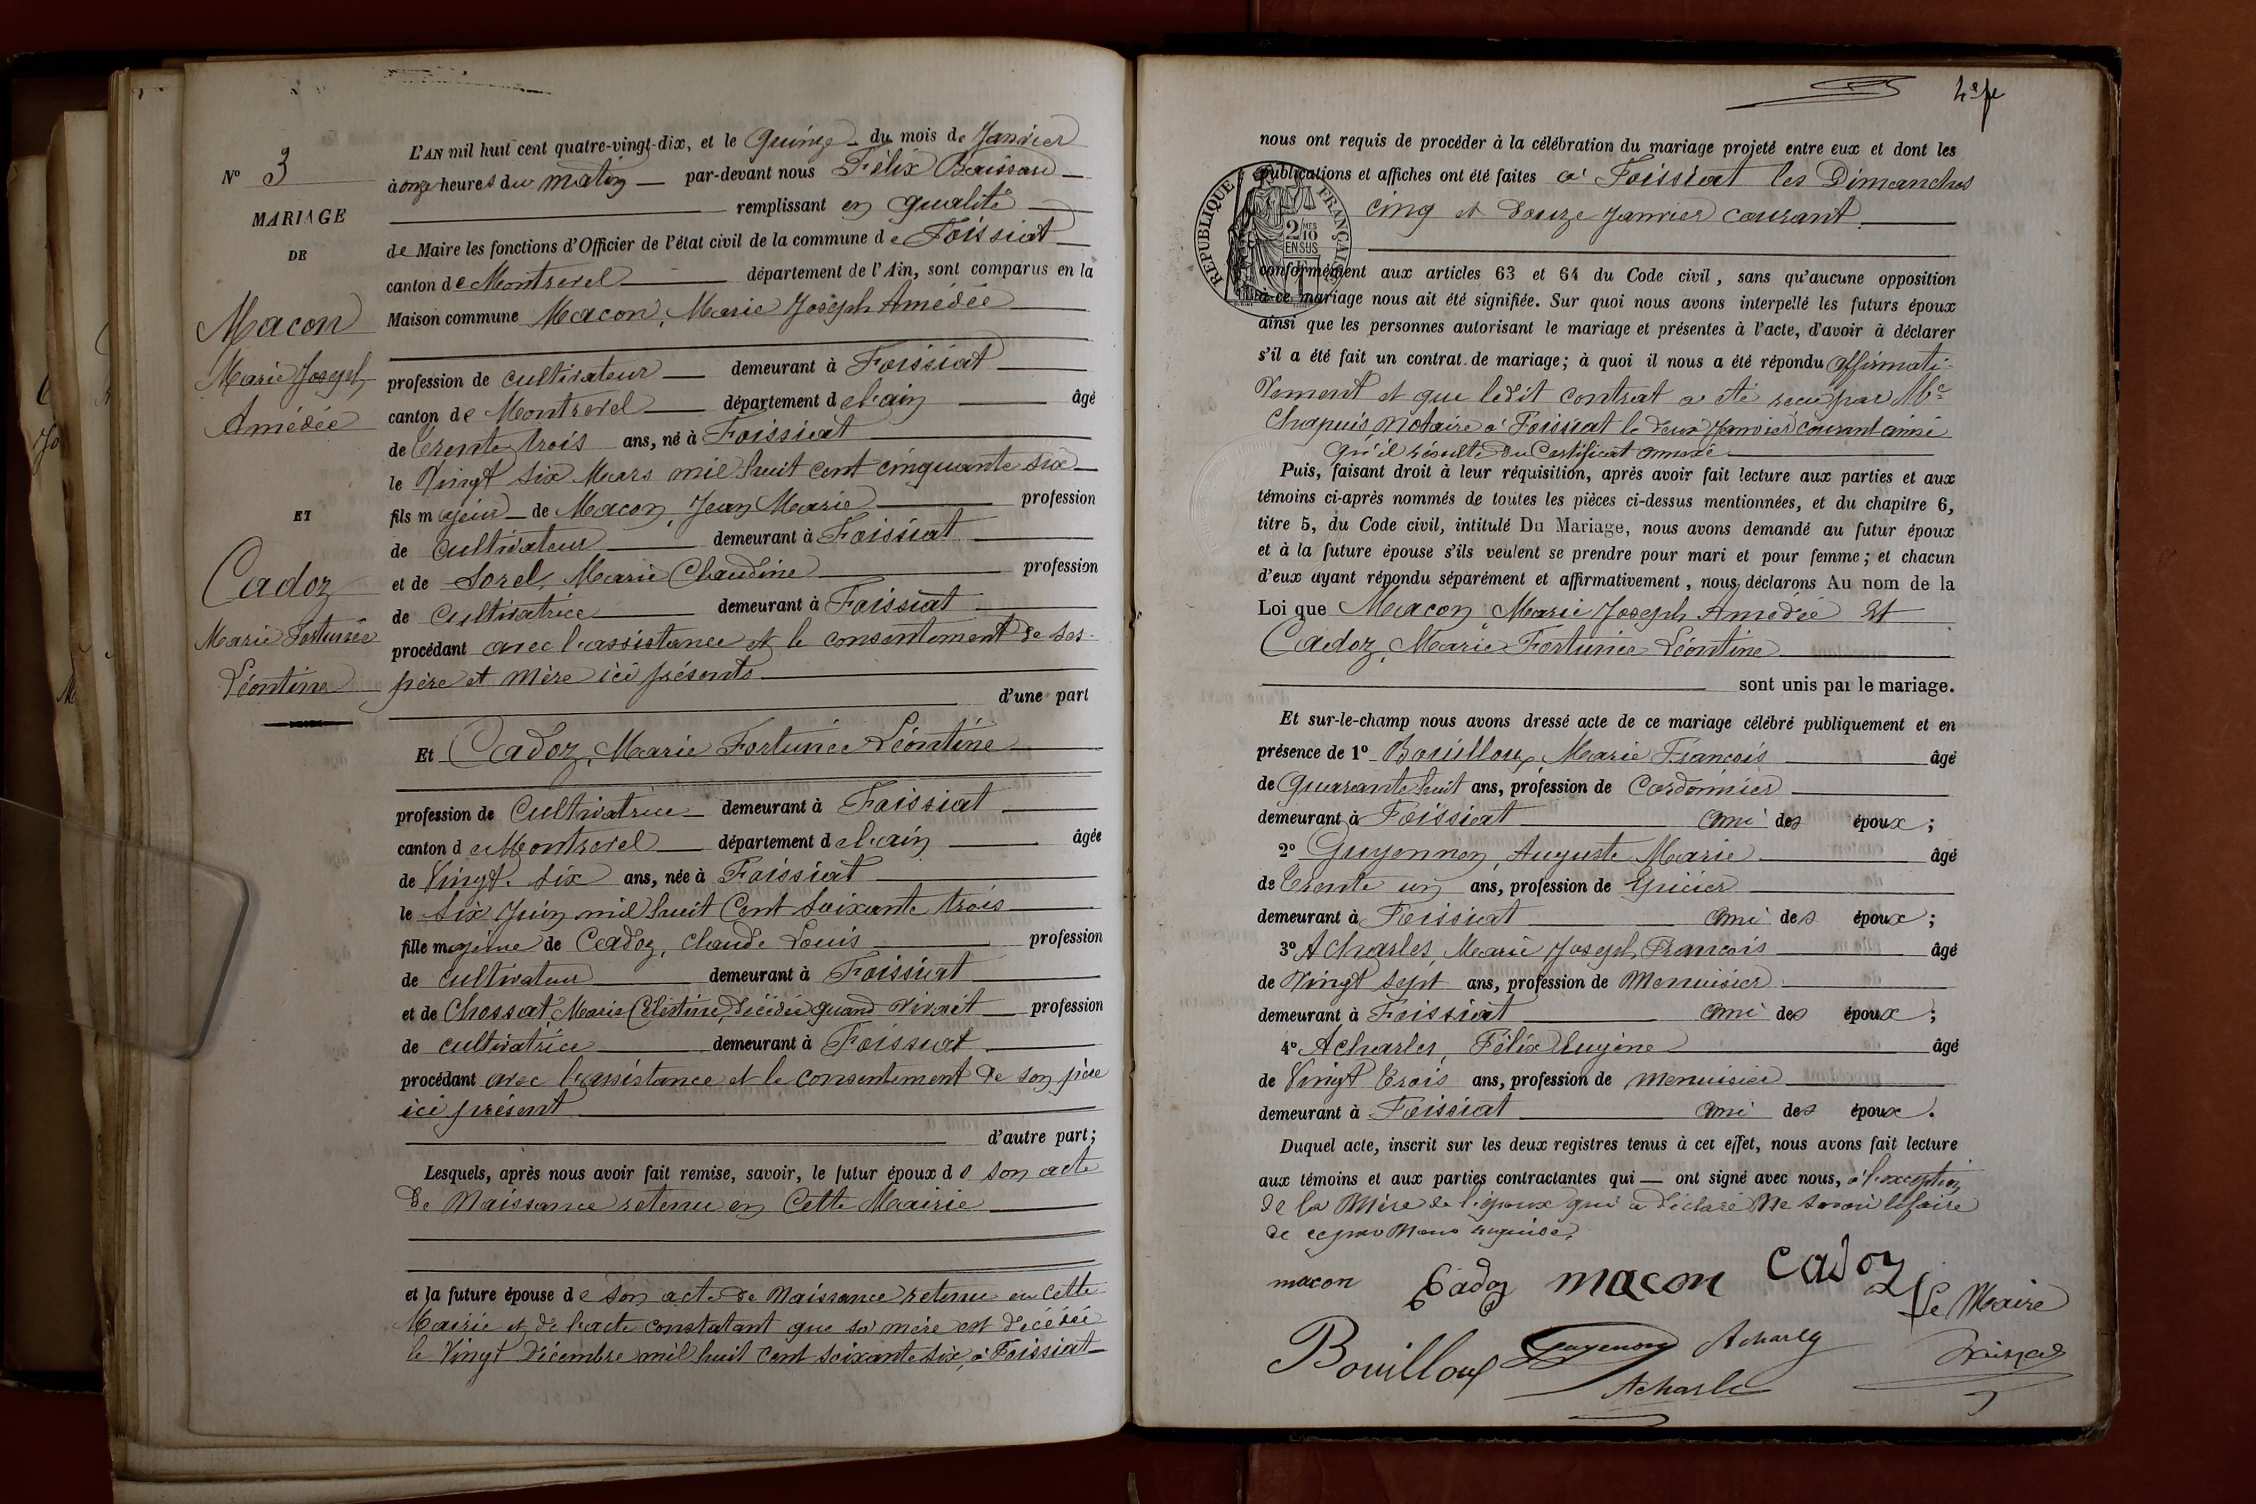 N° 3
MARIAGE
DE
Macon
Marie Joseph
Amédée
ET
Cadoz
Marie Fortunée
Léontine
L'AN mil huit cent quatre-vingt-dix, et le quinze du mois de Janvier
à onze heures du matin par-devant nous Félix
remplissant en qualité
de Maire les fonctions d'Officier de l'état civil de la commune de Foissiat
canton de Montrevel département de l'Ain, sont comparus en la
Maison commune Macon, Marie Joseph Amédée
profession de cultivateur demeurant à Foissiat
canton de Montrevel département de l'ain âgé
de trente trois ans, né à Foissiat
le Vingt six Mars mil huit cent cinquante six
fils majeur de Macon, Jean Marie profession
de cultivateur demeurant à Foissiat
et de Sorel, Marie Claudine profession
de cultivatrice demeurant à Foissiat
procédant avec l'assistance et le consentement de ses
père et mère ici présents
d'une part
Et Cadoz, Marie Fortunée Léontine
profession de Cultivatrice demeurant à Foissiat
canton de Montrevel département de l'ain âgée
de Vingt six ans, née à Foissiat
le Six Juin mil huit Cent Soixante trois
fille majeure de Cadoz, Claude Louis profession
de cultivateur demeurant à Foissiat
et de Chossat, Marie Célestine, décédée quand vivait profession
de cultivatrice demeurant à Foissiat
procédant avec l'assistance et le consentement de son père
ici présent
d'autre part;
Lesquels, après nous avoir fait remise, savoir, le futur époux de son acte
de Naissance retenu en Cette Mairie
et la future épouse de son acte de Naissance retenu en Cette
Mairie et de l'acte constatant que sa mère est décédée
le Vingt Décembre mil huit cent soixante six, à Foissiat
nous ont requis de procéder à la célébration du mariage projeté entre eux et dont les
publications et affiches ont été faites à Foissiat les Dimanches
cinq et douze Janvier courant
RÉPUBLIQUE FRANÇAISE
2/10 MES
EN SUS
conformément aux articles 63 et 64 du Code civil, sans qu'aucune opposition
à ce mariage nous ait été signifiée. Sur quoi nous avons interpellé les futurs époux
ainsi que les personnes autorisant le mariage et présentes à l'acte, d'avoir à déclarer
s'il a été fait un contrat de mariage; à quoi il nous a été répondu affirmati-
vement et que ledit contrat a été reçu par Me
Chapuis Notaire à Foissiat le deux Janvier courant ainsi
qu'il résulte du Certificat annexé
Puis, faisant droit à leur réquisition, après avoir fait lecture aux parties et aux
témoins ci-après nommés de toutes les pièces ci-dessus mentionnées, et du chapitre 6,
titre 5, du Code civil, intitulé Du Mariage, nous avons demandé au futur époux
et à la future épouse s'ils veulent se prendre pour mari et pour femme; et chacun
d'eux ayant répondu séparément et affirmativement, nous déclarons Au nom de la
Loi que Macon, Marie Joseph Amédée Et
Cadoz, Marie Fortunée Léontine
sont unis par le mariage.
Et sur-le-champ nous avons dressé acte de ce mariage célébré publiquement et en
présence de 1° Bouilloux, Marie François âgé
de quarante huit ans, profession de Cordonnier
demeurant à Foissiat ami des époux;
2° Guyennon, Auguste Marie âgé
de trente un ans, profession de épicier
demeurant à Foissiat ami des époux;
3° Acharles, Marie Joseph François âgé
de Vingt sept ans, profession de Menuisier
demeurant à Foissiat ami des époux;
4° Acharles, Félix Eugène âgé
de Vingt trois ans, profession de menuisier
demeurant à Foissiat ami des époux.
Duquel acte, inscrit sur les deux registres tenus à cet effet, nous avons fait lecture
aux témoins et aux parties contractantes qui ont signé avec nous, à l'exception
de la Mère de l'époux qui a déclaré Ne savoir le faire
de ce par Nous requise.
macon Cadoz macon Cadoz
Le Maire
Bouilloux Guyennon Acharles
Acharles